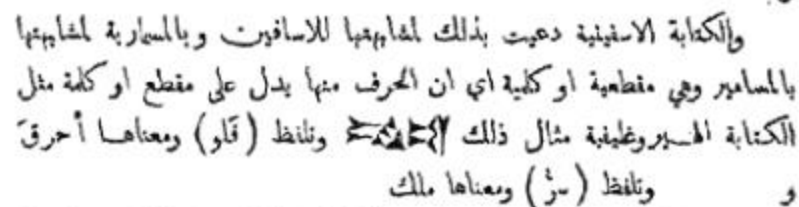 والكتابة الاسفينية دعيت بذلك لمشابهتها للاسافين وبالمسمارية لمشابهتها
بالمسامير وهي مقطعية او كلمية اي ان الحرف منها يدل على مقطع او كلمة مثل
الكتابة الهيروغليفية مثال ذلك وتلفظ (قَلو) ومعناها أحرقَ
و وتلفظ (سرُّ) ومعناها ملك